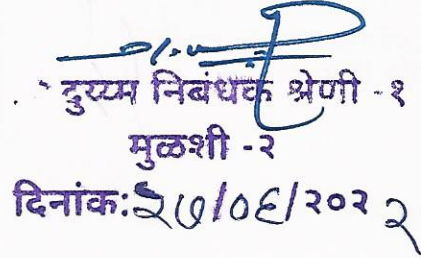 दुय्यम निबंधक श्रेणी -१
मुळशी -२
दिनांक: २७/०६/२०२२